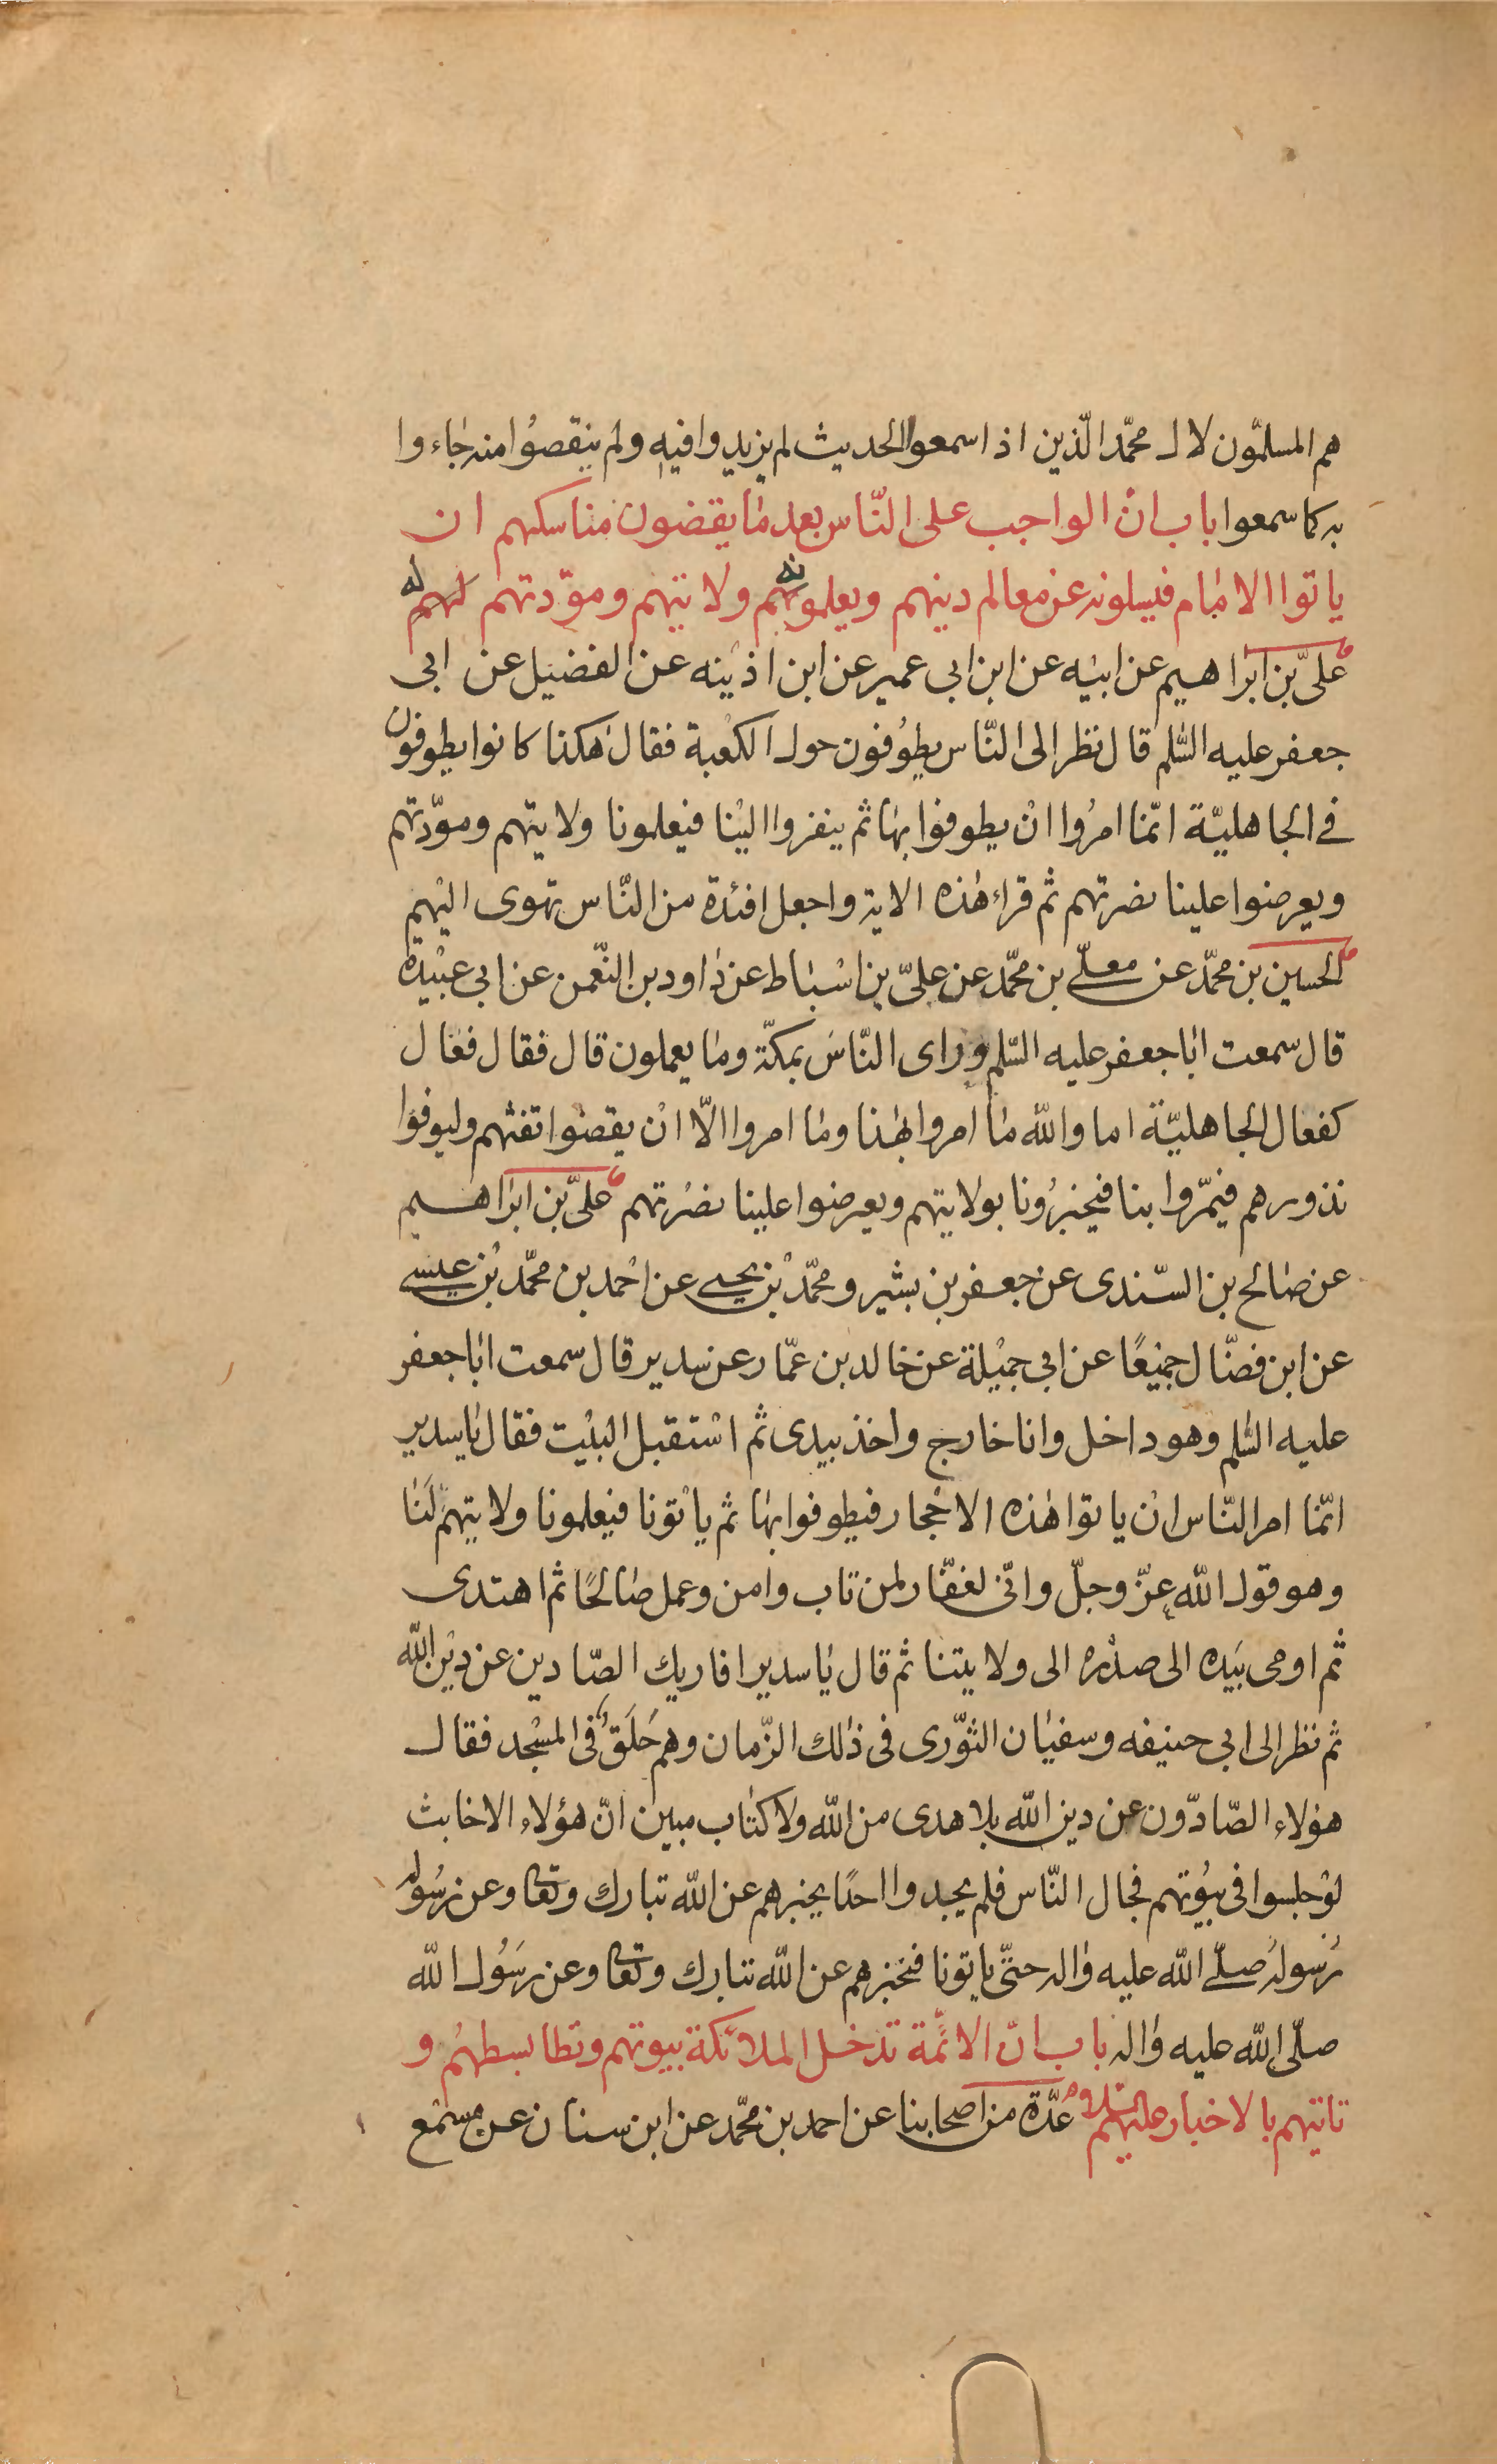 هم المسلمّون لال محمّد الّذين اذا سمعوا الحديث لم يزيدوا فيه ولم ينقصُوا منه جاءوا
به كما سمعوا باب انّ الواجب على النّاس بعد ما يقضون مناسكهم ان
ياتوا الامام فيسلونه عن معالم دينهم ويعلمونهم ولايتهم ومودّتهم له
علىّ بن ابراهيم عن ابيه عن ابن ابى عمير عن ابن اذينه عن الفضيل عن ابى
جعفر عليه السّلم قال نظر الى النّاس يطوُفون حول الكعبة فقال هكذا كانوا يطوفون
فى الجاهليّة انّما امرُوا انْ يطوفوا بها ثم ينفروا الينا فيعلمونا ولايتهم ومودّتهم
ويعرضوا علينا نصرتهم ثم قراء هذه الاية واجعل افئدة من النّاس تهوى اليهم
الحسين بن محمّد عن معلّى بن محمّد عن علىّ بن اسْباط عن داود بن النّعمن عن ابى عبيْدة
قال سمعت ابا جعفر عليه السّلم وراى النّاسَ بمكّة وما يعملون قال فقال فعال
كفعال الجاهليّة اما والله ما امروا بهذا وما امروا الّا انْ يقضوا تفثهم وليوفوا
نذورهم فيمّروا بنا فيخبرُونا بولايتهم ويعرضوا علينا نصْرتهم علىّ بن ابراهيم
عن صالح بن السّندى عن جعفر بن بشير ومحمّد بْن يحيى عن احْمد بن محمّد بْن عيسى
عن ابن فضّال جميْعًا عن ابى جميْلة عن خالد بن عمّار عن سدير قال سمعت ابا جعفر
عليه السّلم وهو داخل وانا خارج واخذ بيدى ثم اسْتقبل البيْت فقال يا سدير
انّما امر النّاس انْ ياتوا هذه الاحْجار فيطوفوا بها ثم ياتْونا فيعلمونا ولايتهم لَنا
وهو قول الله عزّ وجلّ وانّى لغفّار لمن تاب وامن وعمل صالحًا ثم اهتدى
ثم اومى بيَده الى صدْره الى ولايتنا ثم قال يا سدير افاريك الصّادين عن ديْن الله
ثم نظر الى ابى حنيفه وسفيان الثوّرى فى ذلك الزّمان وهم حَلَقٌ فى المسْجد فقال
هؤلاء الصّادّون عن دين الله بلا هدى من الله ولا كتاب مبين انّ هؤلاء الاخابث
لوْ جلسوا فى بيُوتهم فجال النّاس فلم يجدوا احدًا يخبرهم عن الله تبارك وتعا وعن رسُوله
رسُوله صلّى الله عليه واله حتىّ ياتونا فنخبرهم عن الله تبارك وتعا وعن رسَُول الله
صلّى الله عليه واله باب انّ الائمّة تدخل الملائكة بيوتهم وتطا بسطهُم و
تاتيهم بالاخبار عليهم السّلام عدّة من اصحابنا عن احمد بن محمّد عن ابن سنان عن مسمَع